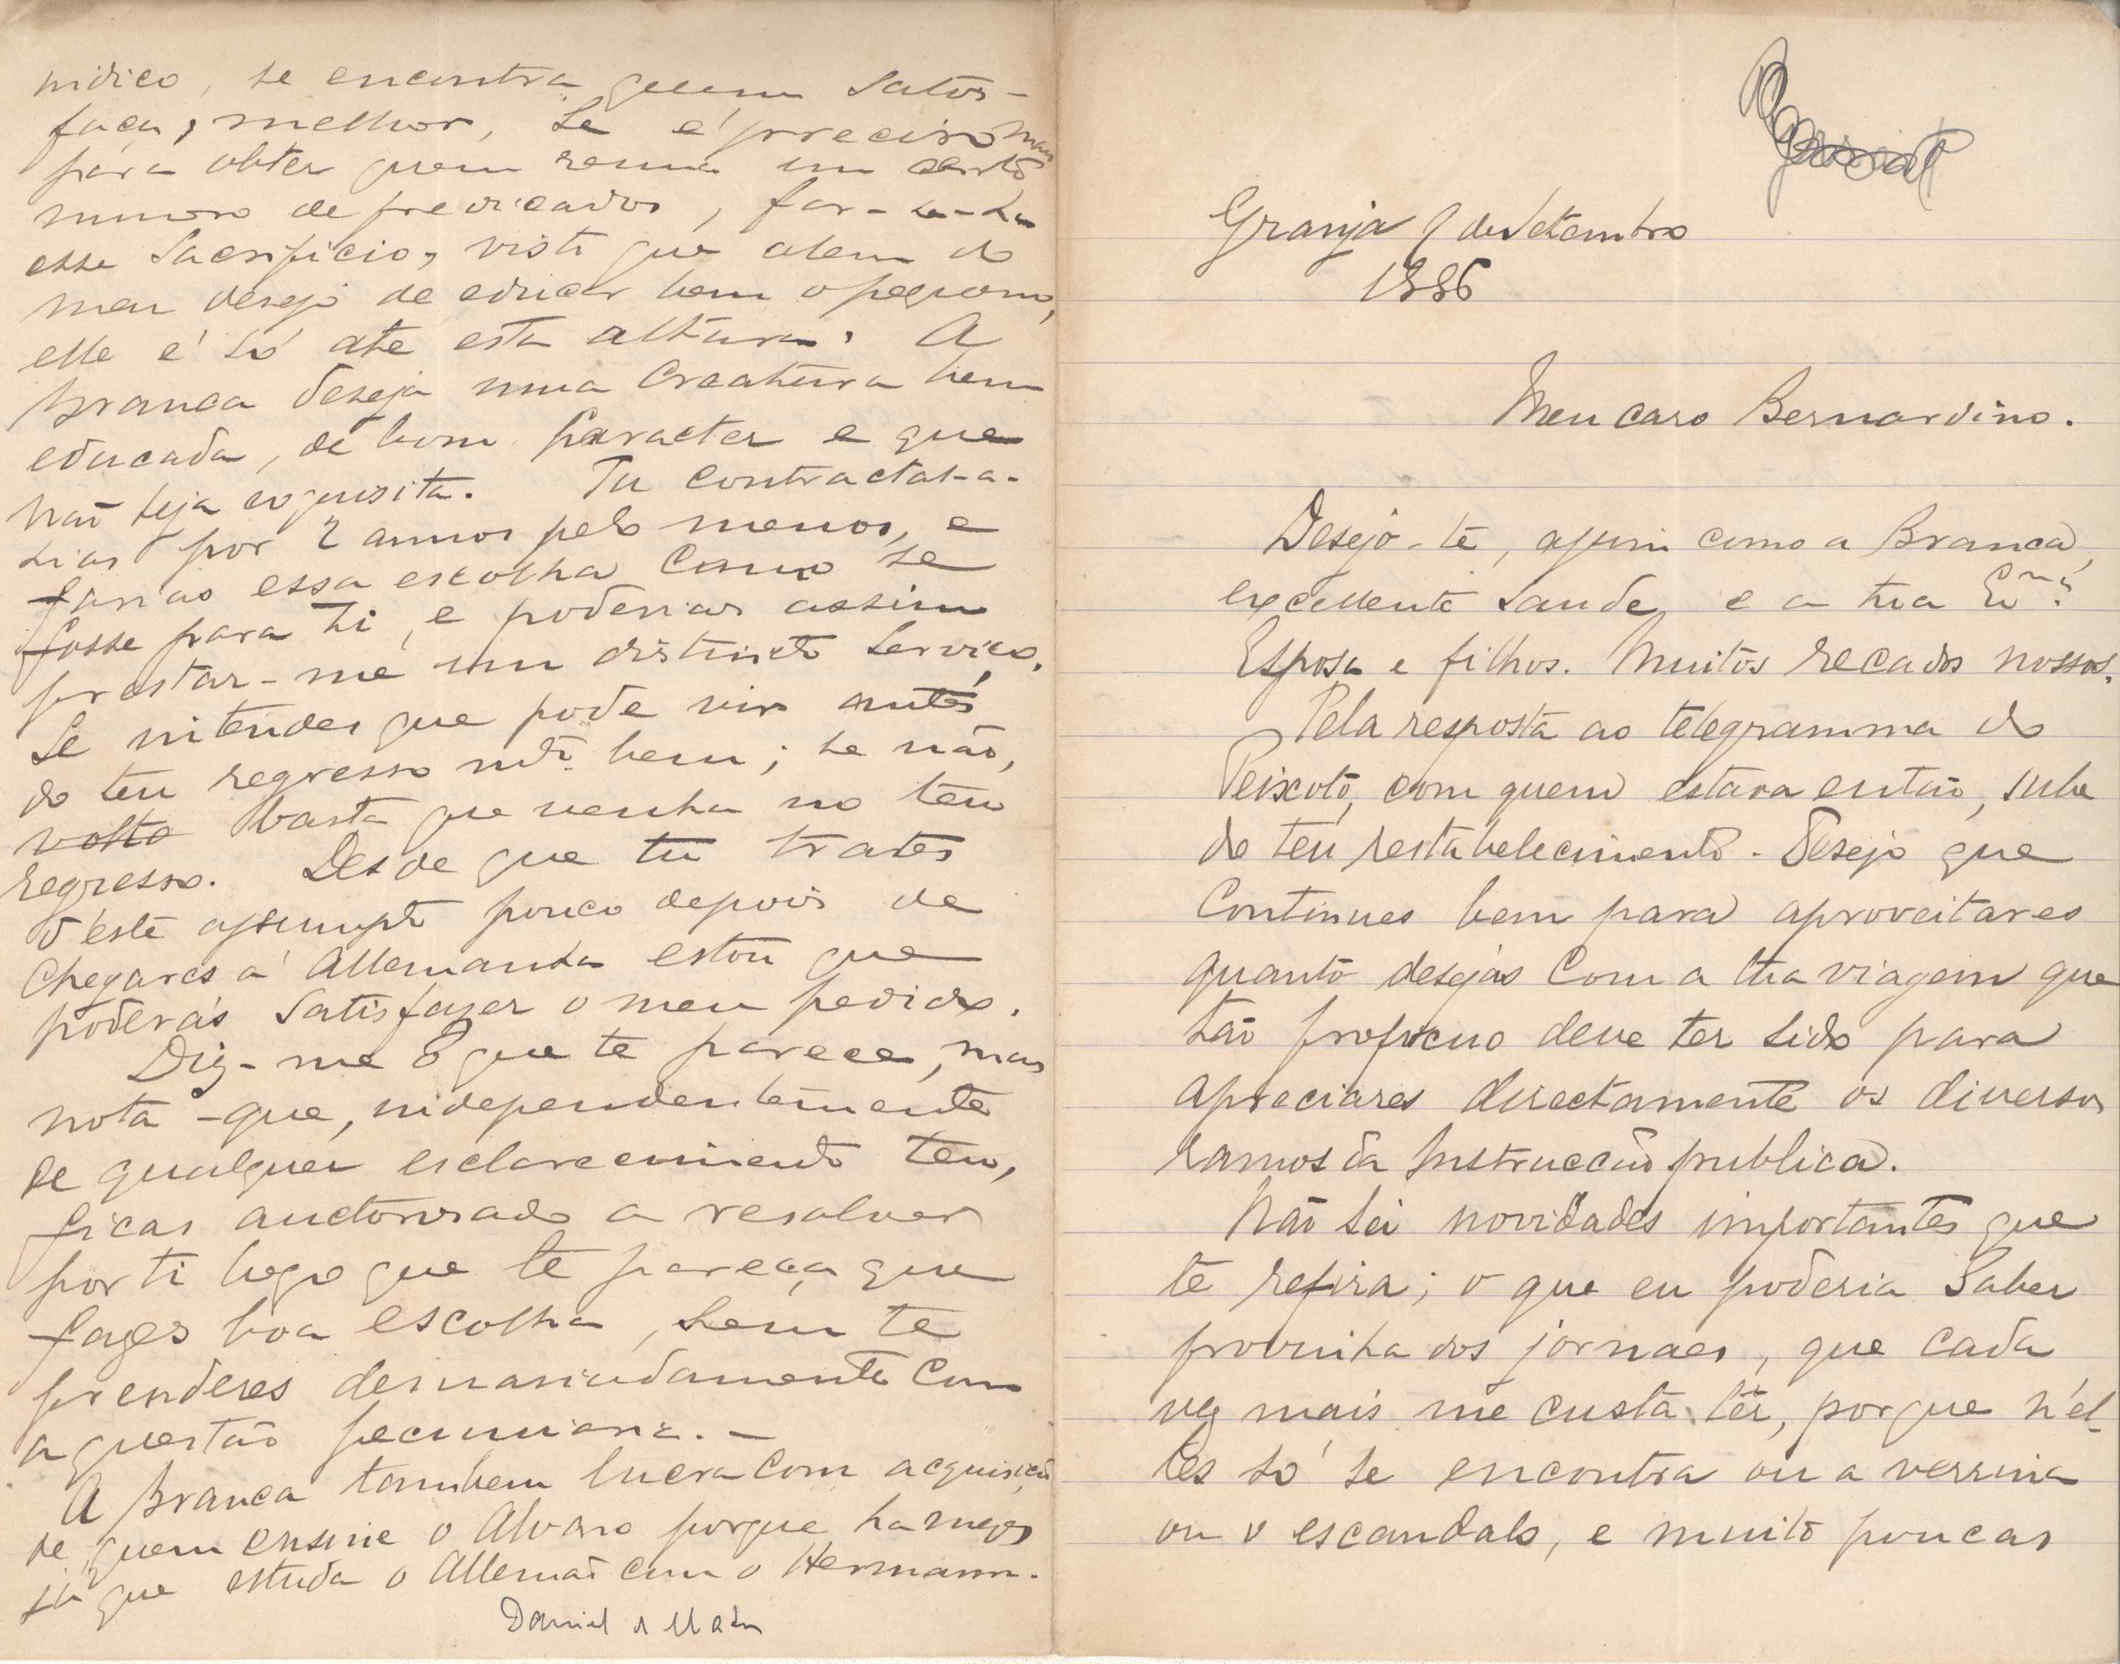 Granja 9 de Setembro
1886
Meu caro Bernardino.
Desejo-te, assim como a Branca,
excellente saude, e a tua Exmª
Esposa e filhos. Muitos recados nossos.
Pela resposta ao telegramma do
Peixoto, com quem estava então, sube
do teu restabelecimento. Desejo que
continues bem para aproveitares
quanto desejas com a tua viagem que
tão proficuo deve ter sido para
apreciares directamente os diversos
ramos da Instrucção publica.
Não sei novidades importantes que
te refira; o que eu poderia saber
provinha dos jornaes, que cada
vez mais me custa lêr, porque n'el-
les só se encontra ou a verrina
ou o escandalo, e muito poucas
indico, se encontra quem satis-
faça, melhor, se é preciso mais
para obter quem reuna um certo
numero de predicados, far-se-ha
esse sacrificio, visto que alem do
meu desejo de educar bem o pequeno,
elle é só até esta altura. A
Branca deseja uma creatura bem
educada, de bom caracter e que
não seja exquisita. Tu contractal-a-
hias por 2 annos pelo menos, e
farias essa escolha como se
fosse para ti, e poderias assim
prestar-me um distincto serviço.
Se intendes que pode vir antes
do teu regresso mto bem; se não,
volta basta que venha no teu
regresso. Desde que tu trates
d'este assumpto pouco depois de
chegares á Allemanha estou que
poderás satisfazer o meu pedido.
Diz-me o que te parece, mas
nota-que, independentemente
de qualquer esclarecimento teu,
ficas auctorisado a resolver
por ti logo que te pareça que
fazes boa escolha, sem te
prenderes demasiadamente com
a questão pecuniaria.-
A Branca tambem lucra com acquisição
de quem ensine o Alvaro porque ha mezes
já que estuda o Allemão com o Hermann.
Daniel